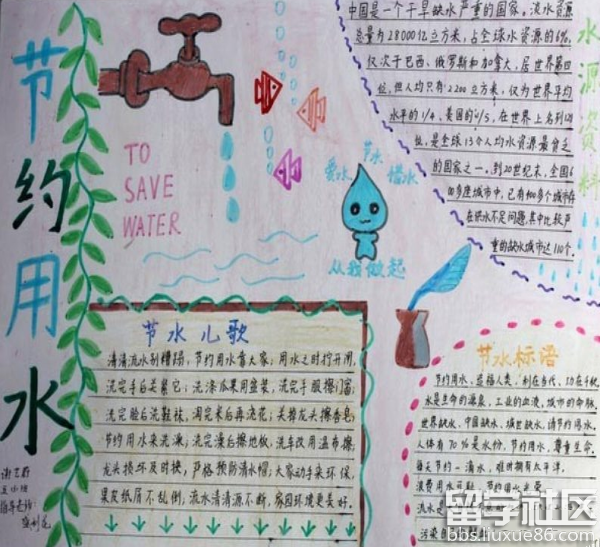 节约用水
TO
SAVE
WATER
爱水 节水 惜水
从我做起
水源资料
中国是一个干旱缺水严重的国家。淡水资源
总量为28000亿立方米,占全球水资源的6%,
仅次于巴西、俄罗斯和加拿大,居世界第四
位,但人均只有2200立方米,仅为世界平均
水平的1/4、美国的1/5,在世界上名列121
位,是全球13个人均水资源最贫乏
的国家之一。到20世纪末,全国6
00多座城市中,已有400多个城市存
在供水不足问题,其中比较严
重的缺水城市达110个。
节水儿歌
清清流水别糟蹋,节约用水靠大家;用水之时拧开闸,
洗完手后关紧它;洗涤瓜果用盆装,洗完手服擦门窗;
洗完脸后洗鞋袜,淘完米后再浇花;关掉龙头擦香皂,
节约用水来洗澡;洗完澡后擦地板,洗车改用湿布擦;
龙头损坏及时换,严格预防清水哪;大家动手来环保,
果皮纸屑不乱倒;流水清清源不断,家园环境更美好。
节水标语
节约用水、造福人类,利在当代、功在千秋
水是生命的源泉、工业的血液、城市的命脉
世界缺水、中国缺水、城世缺水,请节约用水。
人体有70%是水份,节约用水,尊重生命。
每天节约一滴水,难时拥有太平洋。
浪费用水可耻,节约用水光荣
流水是
污染
留学社区
bbs.liuxue86.com